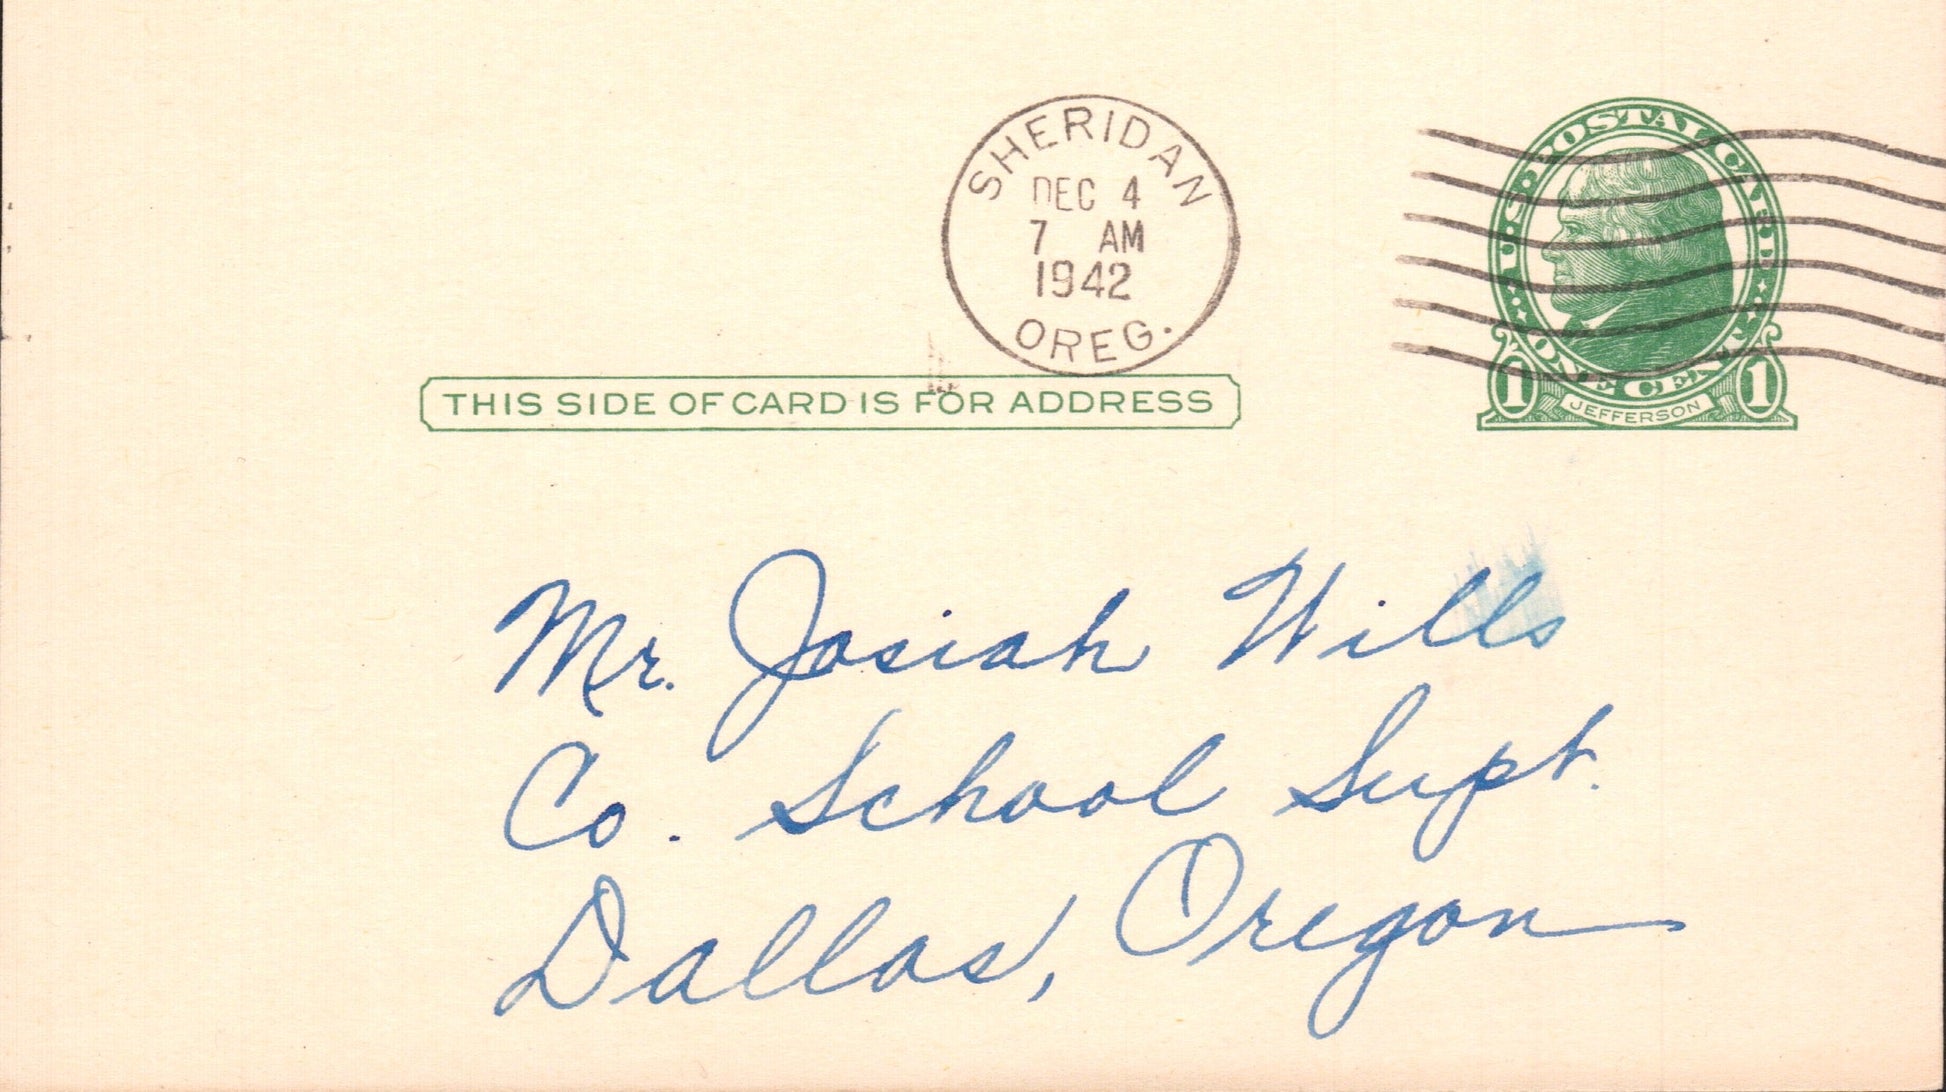 SHERIDAN
DEC 4
7 AM
1942
OREG.
U.S. POSTAL CARD
ONE CENT
1 1
JEFFERSON
THIS SIDE OF CARD IS FOR ADDRESS
Mr. Josiah Wills
Co. School Supt.
Dallas, Oregon